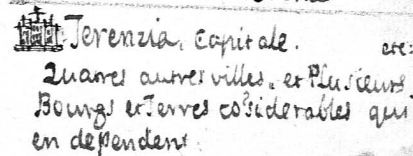 Terenzia, Capitale. etc:
Quatres autres villes, et Plusieurs
Bourgs et Terres co'siderables qui
en dependent